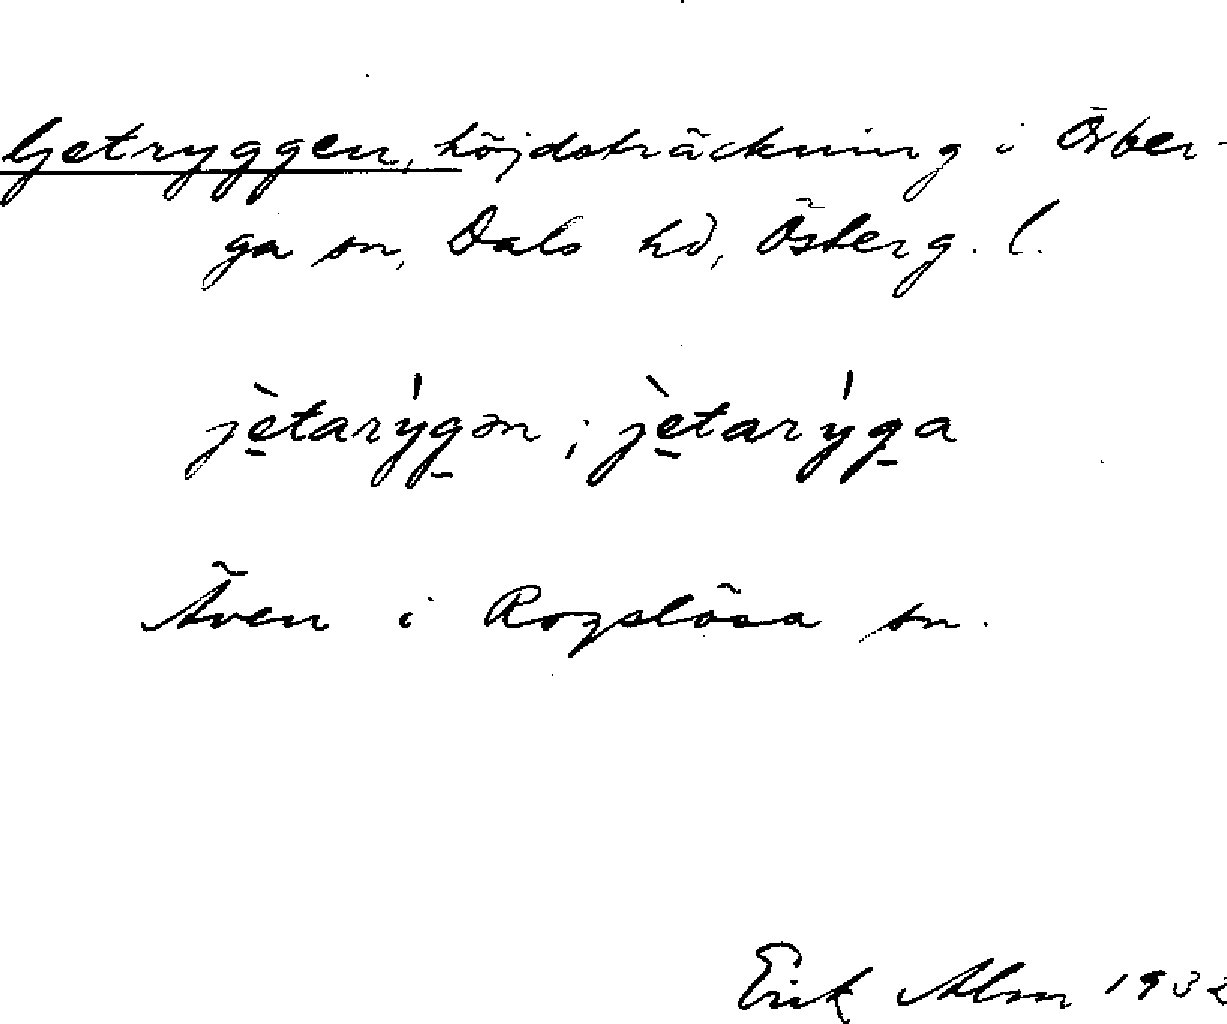 Getryggen, höjdsträckning i Örber-
ga sn, Dals hd, Österg. l.
jètarýgən ; jètarýga
Även i Rogslösa sn.
Erik Alm 1932